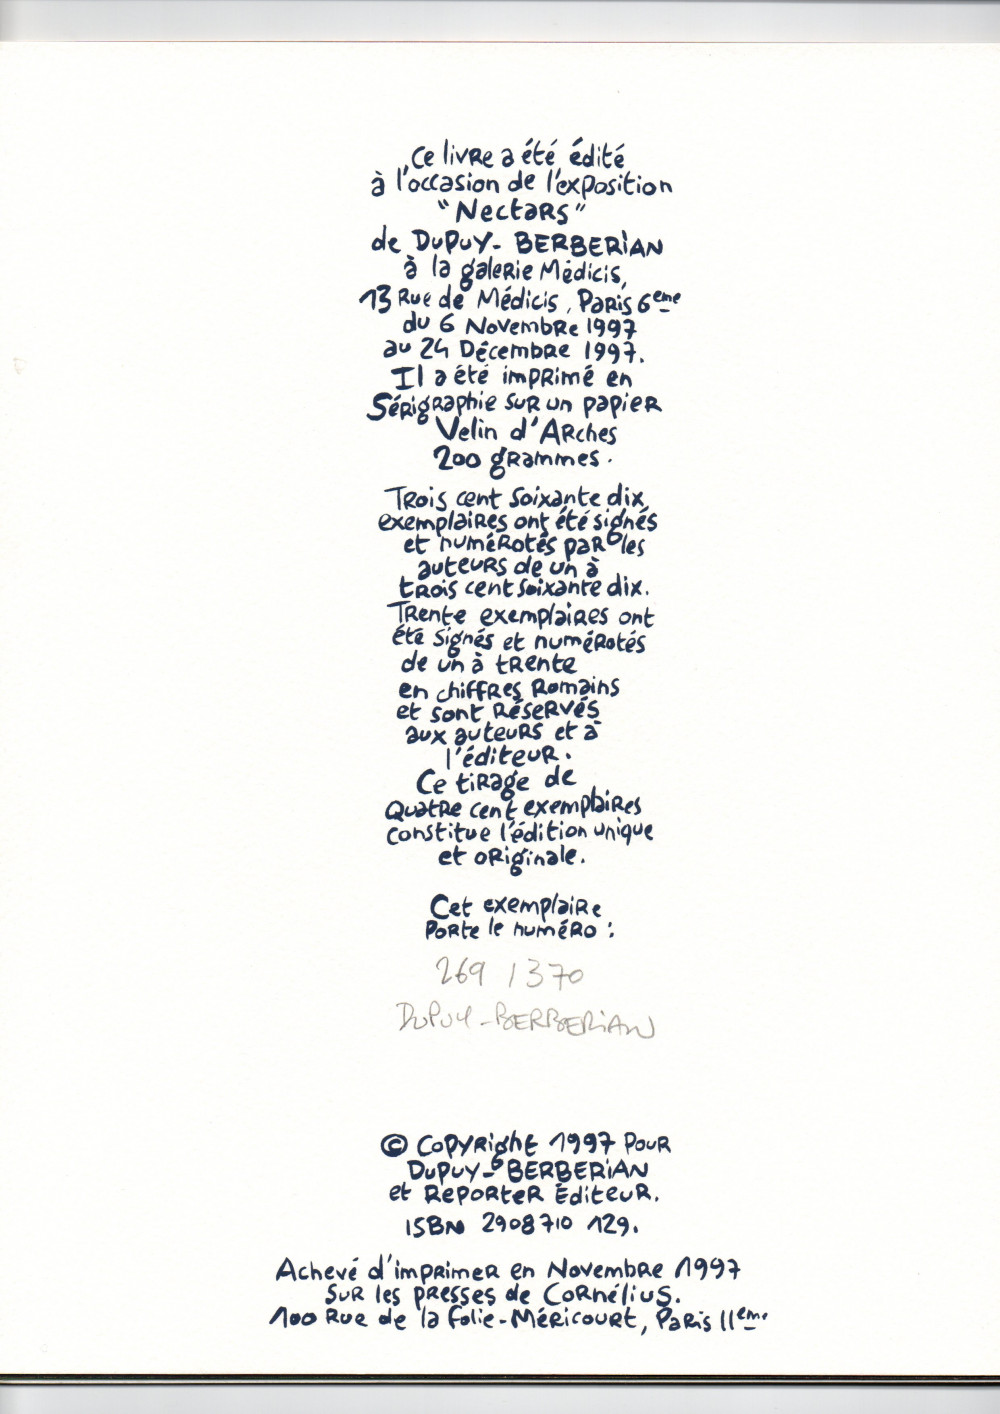 Ce livre a été édité
à l'occasion de l'exposition
"Nectars"
de DUPUY-BERBERIAN
à la galerie Médicis,
13 Rue de Médicis, Paris 6ème
du 6 Novembre 1997
au 24 Décembre 1997.
Il a été imprimé en
Sérigraphie sur un papier
Velin d'Arches
200 grammes.
Trois cent soixante dix
exemplaires ont été signés
et numérotés par les
auteurs de un à
trois cent soixante dix.
Trente exemplaires ont
été signés et numérotés
de un à trente
en chiffres Romains
et sont réservés
aux auteurs et à
l'éditeur.
Ce tirage de
Quatre cent exemplaires
constitue l'édition unique
et originale.
Cet exemplaire
porte le numéro :
269 / 370
DUPUY-BERBERIAN
© Copyright 1997 pour
DUPUY-BERBERIAN
et Reporter Éditeur.
ISBN 2908710 129.
Achevé d'imprimer en Novembre 1997
sur les presses de Cornélius.
100 Rue de la folie-Méricourt, Paris 11ème